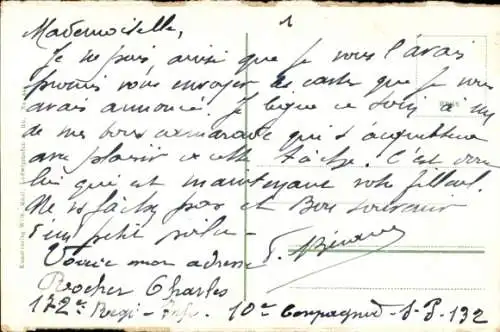 Mademoiselle,
Je ne puis, ainsi que je vous l'avais
promis vous envoyer des cartes que je vous
avais annoncé. Je lègue ce soin à un
de mes bons camarade qui s'acquittera
avec plaisir de cette tâche. C'est donc
lui qui est maintenant votre filleul.
Ne vs fâchez pas et Bon souvenir
d'un petit poilu
Voici mon adresse
Rocher Charles
172e Regi - Inf. 10e Compagnie - S.P. 132